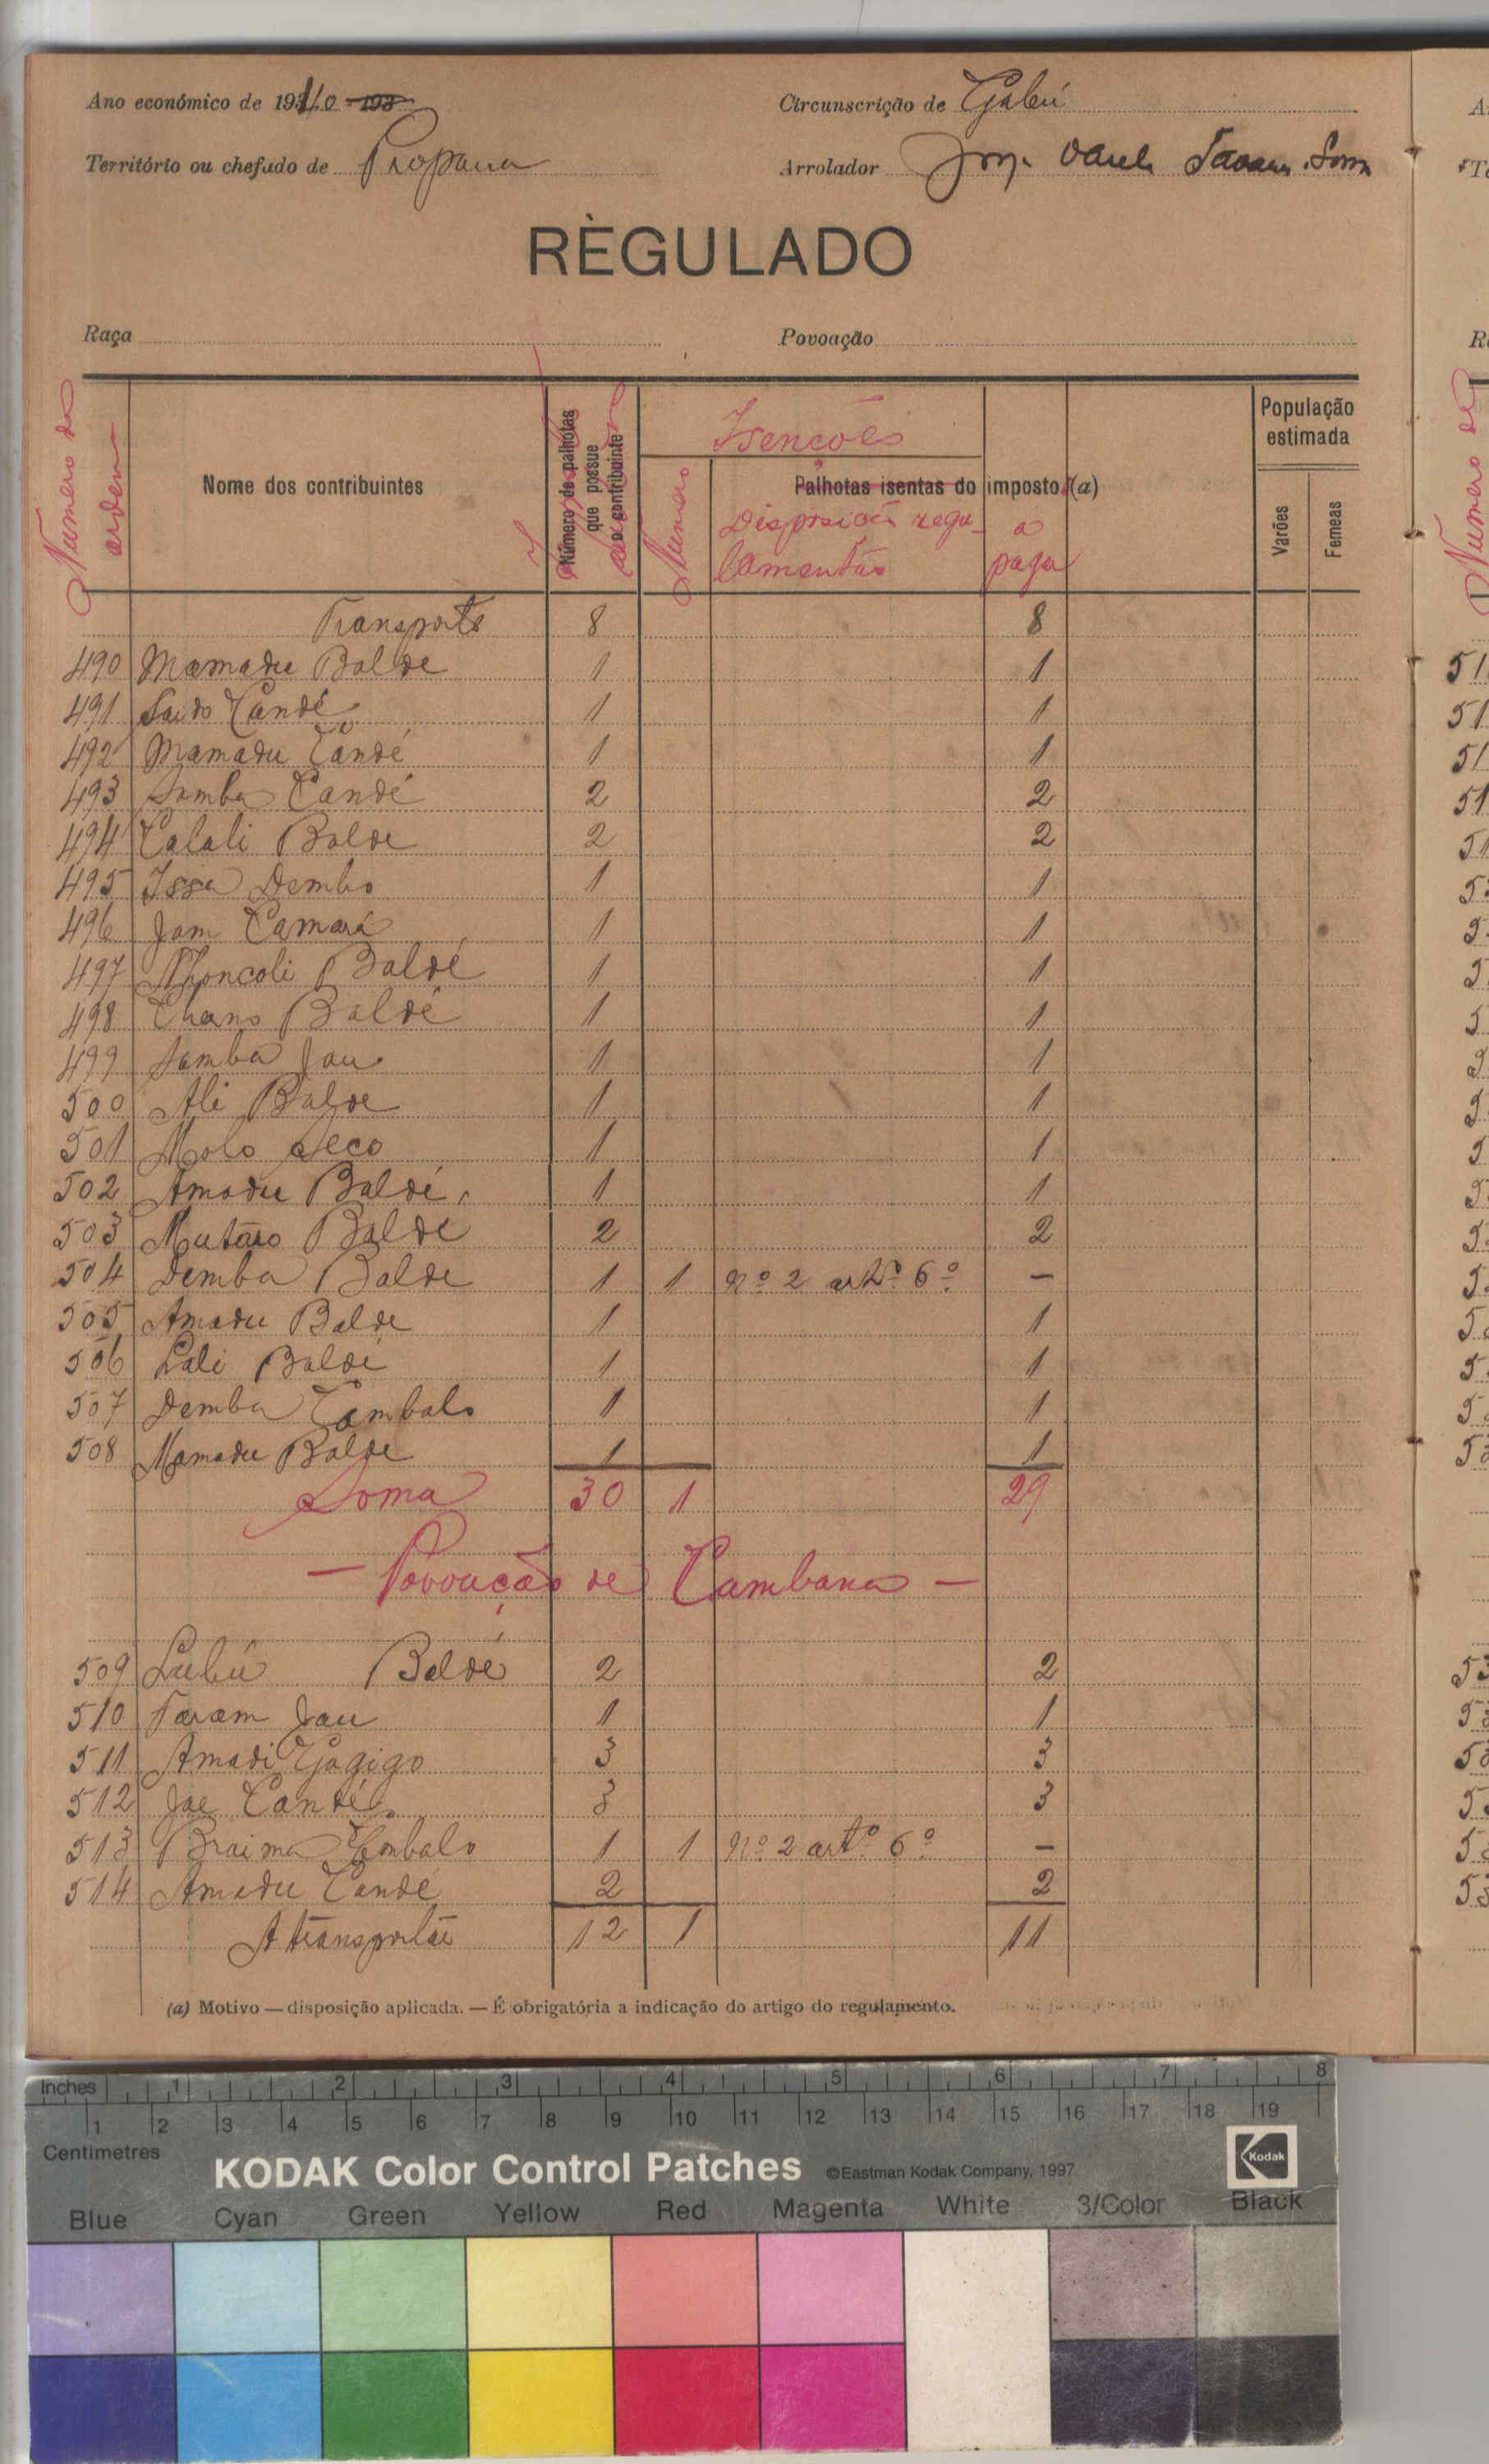 Ano económico de 1940 193
Circunscrição de Gabú
Território ou chefado de Propana
Arrolador Tavares
RÈGULADO
Raça
Povoação
Numero de ordem
Nome dos contribuintes
Número de palhotas que possue o contribuinte
Isencões
Numero
Palhotas isentas do imposto (a)
Disposição regulamentar
a pagar
População estimada
Varões
Femeas
Transporte 8 8
490 Mamadu Balde 1 1
491 Saido Candé 1 1
492 Mamadu Candé 1 1
493 Samba Candé 2 2
494 Calali Balde 2 2
495 Issa Dembo 1 1
496 Jam Camará 1 1
497 Nhoncoli Baldé 1 1
498 Chano Baldé 1 1
499 Samba Jau 1 1
500 Ali Balde 1 1
501 Molo Seco 1 1
502 Amadu Baldé 1 1
503 Mutaro Balde 2 2
504 Demba Balde 1 1 nº 2 artº 6º —
505 Amadu Balde 1 1
506 Lali Baldé 1 1
507 Demba Cambalo 1 1
508 Mamadu Balde 1 1
Soma 30 1 29
— Povoação de Cambana —
509 Lubú Baldé 2 2
510 Faram Jau 1 1
511 Amadi Gagigo 3 3
512 Jae Candé 3 3
513 Braima Embalo 1 1 nº 2 artº 6º —
514 Amadu Candé 2 2
A transportar 12 1 11
(a) Motivo — disposição aplicada. — É obrigatória a indicação do artigo do regulamento.
Inches 1 2 3 4 5 6 7 8
1 2 3 4 5 6 7 8 9 10 11 12 13 14 15 16 17 18 19
Centimetres
KODAK Color Control Patches ©Eastman Kodak Company, 1997 Kodak
Blue Cyan Green Yellow Red Magenta White 3/Color Black